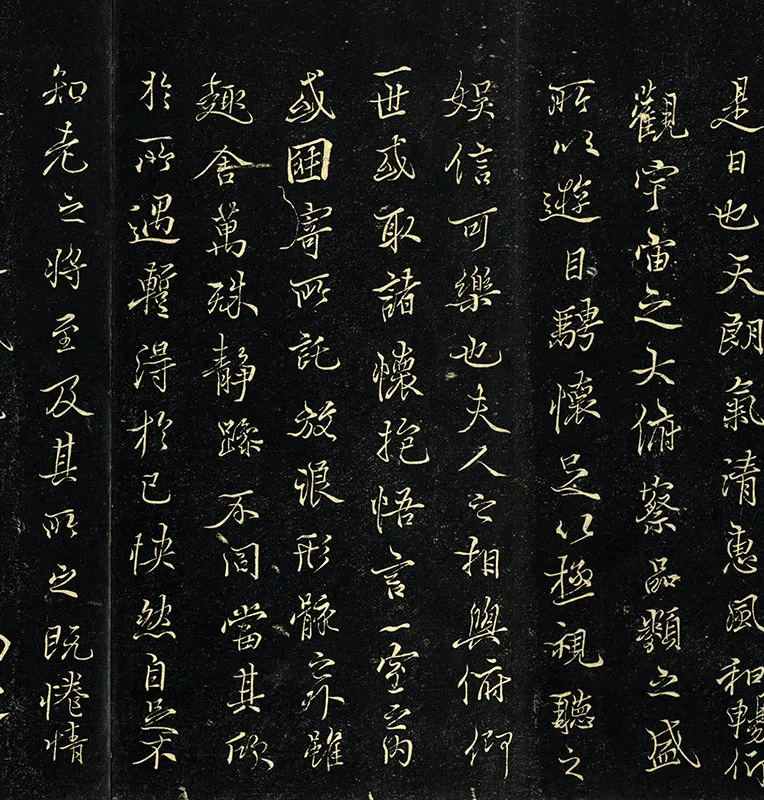 是日也天朗氣清惠風和暢仰
觀宇宙之大俯察品類之盛
所以遊目騁懷足以極視聽之
娛信可樂也夫人之相與俯仰
一世或取諸懷抱悟言一室之內
或因寄所託放浪形骸之外雖
趣舍萬殊靜躁不同當其欣
於所遇暫得於己快然自足不
知老之將至及其所之既惓情